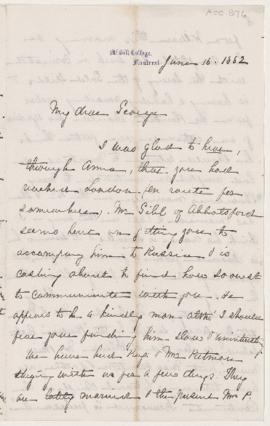 Acc 876
McGill College,
Montreal. June 16. 1882
My dear George
I was glad to hear,
through Anna, that you had
reached London en route for
somewhere. Mr Gibb of Abbotsford
seems bent on getting you to
accompany him to Russia & is
casting about to find how soonest
to communicate with you. He
appears to be a kindly man & I should
fear your finding him slow &
We have had Revd & Mrs Pitman
staying with us for a few days. They
are lately married & the present Mrs P.